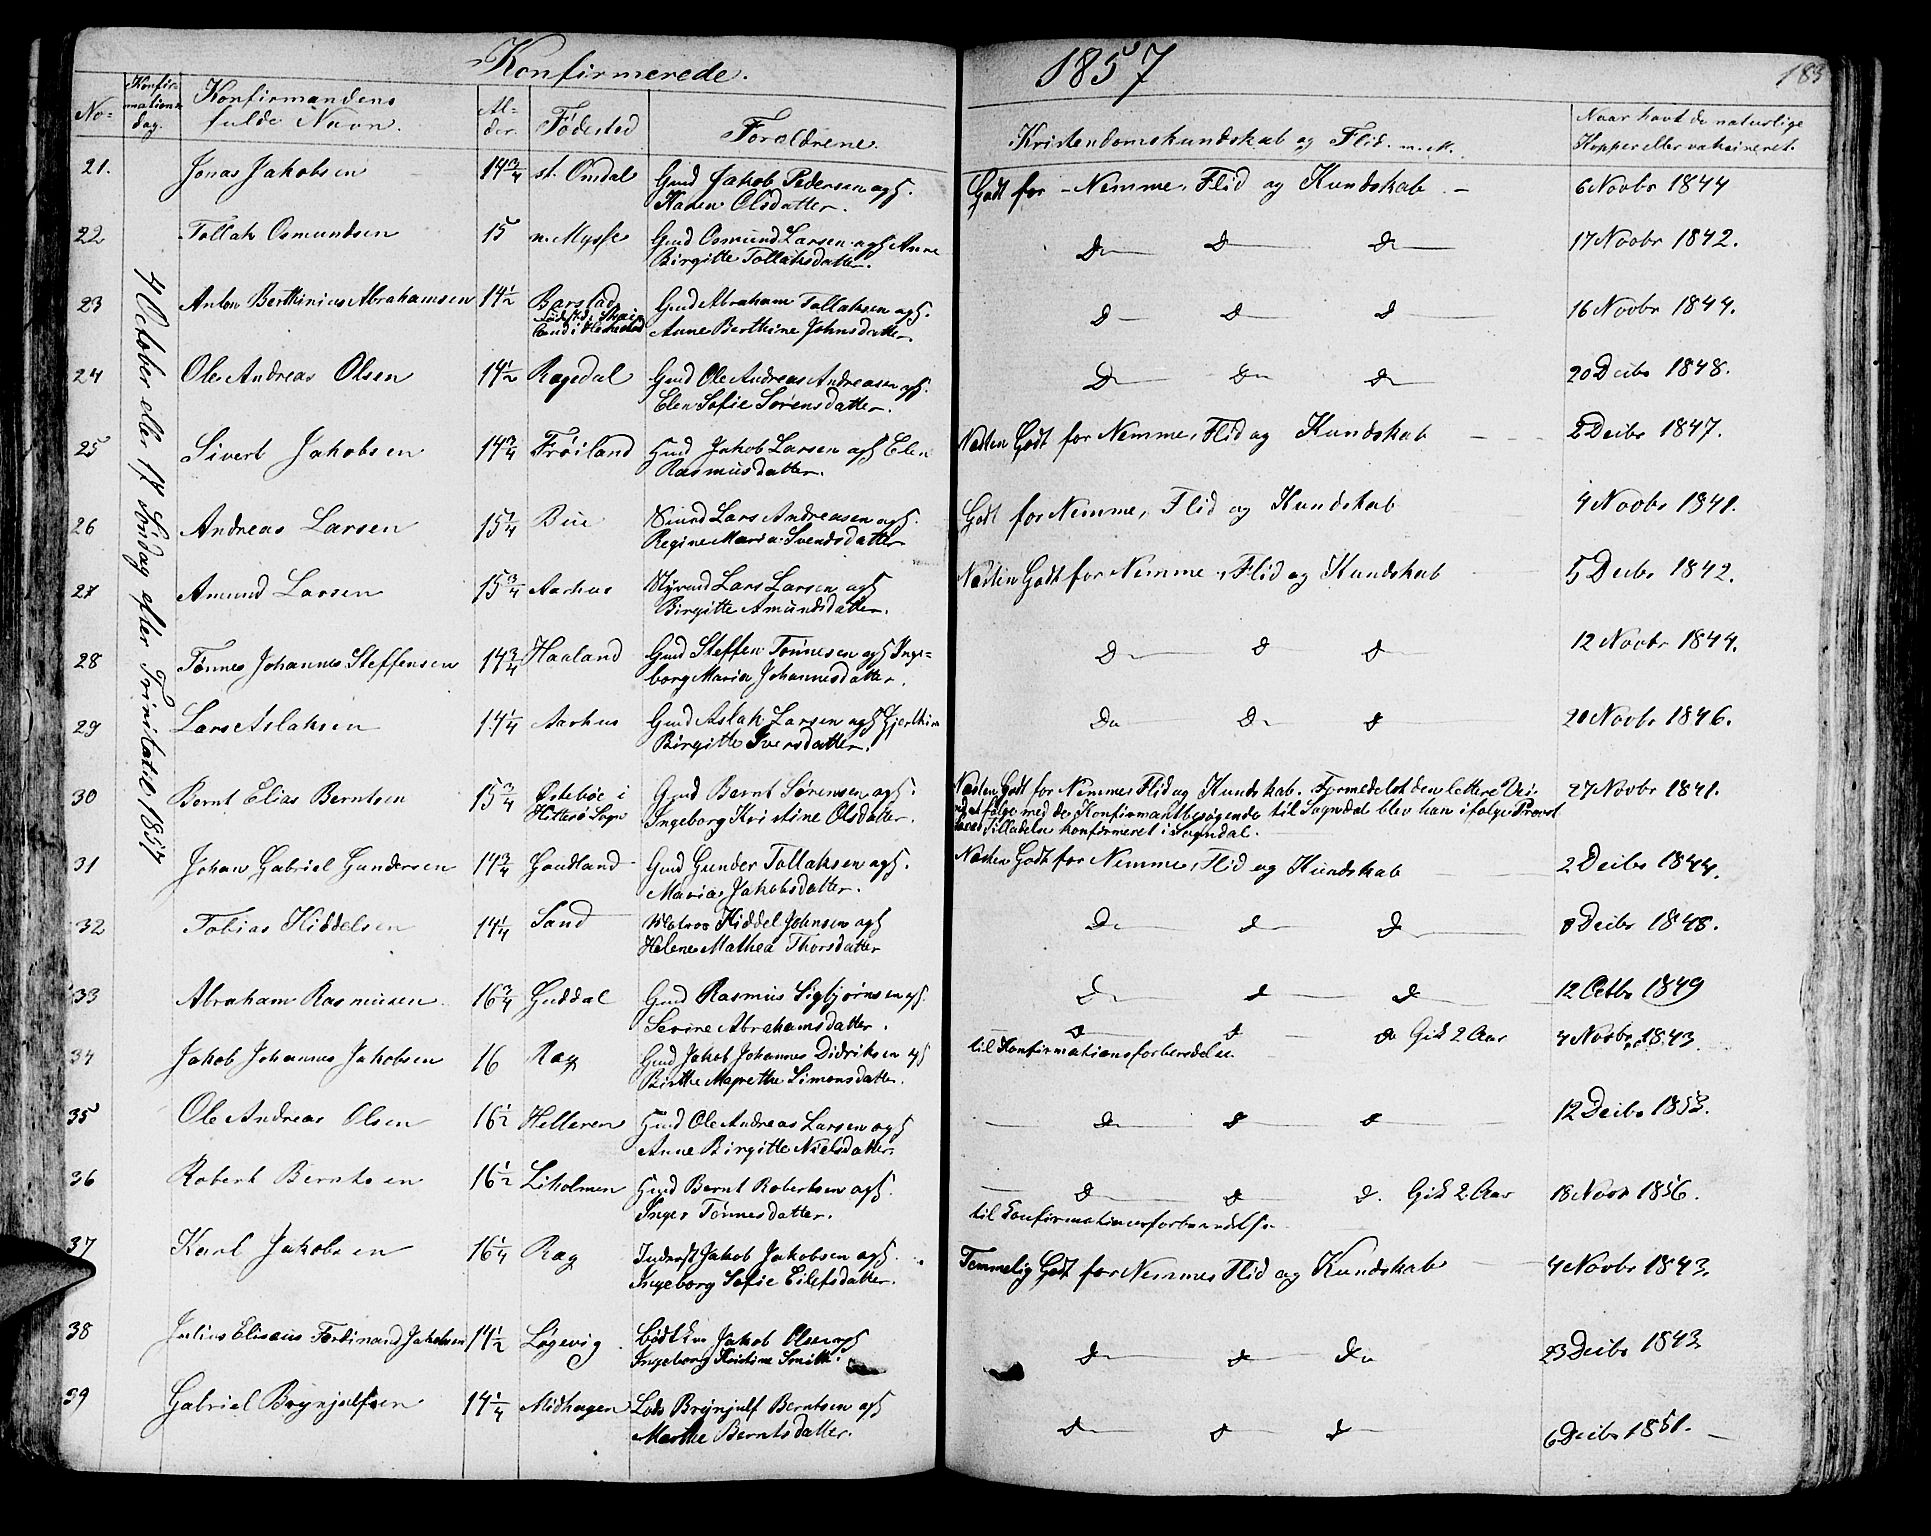 Konfirmerede.
1857
183
No
Konfir-
mations
dag.
Konfirmandens
fulde Navn.
Al-
der.
Fødested
Forældrene.
Kristendomskundskab og Flid. m.v.
Naar havt de naturlige
Kopper eller vakcineret.
4 October eller 17 Søndag efter Trinitatis 1857
21. Jonas Jakobsen 14 3/4 st. Omdal Gmd Jakob Pedersen og H. Godt for Nemme, Flid og Kundskab - 6 Novbr 1844
Karen Olsdatter.
22 Tollak Osmundsen 15 n. Mysse Gmd Osmund Larsen og H Anne Do Do Do 17 Novbr 1842.
Birgitte Tollaksdatter.
23 Anton Berthinius Abrahamsen 14 1/2 Barstad Gmd Abraham Tollaksen og H. Do Do Do 16 Novbr 1844.
Fødested: Skaar
land i Heskestad Anne Berthine Johnsdatter.
24 Ole Andreas Olsen 14 1/2 Ragedal Gmd Ole Andreas Andreasen og H. Do Do Do 20 Decbr 1848.
Elen Sofie Sørensdatter.
25 Sivert Jakobsen 14 3/4 Frøiland Gmd Jakob Larsen og H Elen Næsten Godt for Nemme, Flid og Kundskab - - - 2 Decbr 1847.
Rasmusdatter.
26 Andreas Larsen 15 1/4 Bue Lars Andreasen og H. Godt for Nemme, Flid og Kundskab 4 Novbr 1841.
Regine Maria Svendsdatter
27 Amund Larsen 15 3/4 Aarhus Styrmd Lars Larsen og H Næsten Godt for Nemme, Flid og Kundskab 5 Decbr 1842.
Birgitte Amundsdatter.
28 Tønnes Johannes Steffensen 14 3/4 Haaland Gmd Steffen Tønnesen og H Inge- Do Do Do 12 Novbr 1844.
borg Maria Johannesdatter.
29 Lars Aslaksen 14 1/4 Aarhus Gmd Aslak Larsen og H Gjerthine Do Do Do 20 Novbr 1846.
Birgitte Iversdatter.
30 Bernt Elias Berntsen 15 3/4 Østebøe i Gmd Bernt Sørensen og H. Næsten Godt for Nemme, Flid og Kundskab. Formedelst den lettere Vei- 27 Novbr 1841.
Hitterø Sogn Ingeborg Kristine Olsdatter. ved at følge med de Konfirmantbesøgende til Sogndal blev han ifølge Provst
Tilladelse konfirmeret i Sogndal.
31 Johan Gabriel Gundersen 14 3/4 Haadland Gmd Gunder Tollaksen og H. Næsten Godt for Nemme, Flid og Kundskab 2 Decbr 1844.
Maria Jakobsdatter.
32 Tobias Kiddelsen 14 1/4 Sand Matros Kiddel Johnsen og H Do Do Do 8 Decbr 1848.
Helene Mathea Thorsdatter
33 Abraham Rasmussen 16 3/4 Guddal Gmd Rasmus Sigbjørnsen og H. Do Do Do 12 Octbr 1849
Serine Abrahamsdatter.
34 Jakob Johannes Jakobsen 16 Ræg Gmd Jakob Johannes Didriksen og H Do Do Do Gik 2 Aar 4 Novbr 1843.
Birthe Magrethe Simonsdatter. til Konfirmationsforberedelse
35 Ole Andreas Olsen 16 1/2 Helleren Gmd Ole Andreas Larsen og H Do Do Do 12 Decbr 1853.
Anne Birgitte Nielsdatter.
36 Robert Berntsen 16 1/2 Liholmen Gmd Bernt Robertsen og H. Do Do Do. Gik 2 Aar 18 Novbr 1856.
Inger Tønnesdatter. til Konfirmationsforberedelse
37 Karl Jakobsen 16 1/4 Ræg Inderst Jakob Jakobsen og H. Temmelig Godt for Nemme, Flid og Kundskab 4 Novbr 1843.
Ingeborg Sofie Eilefsdatter.
38 Julius Elisæus Ferdinand Jakobsen 14 1/2 Løgevig Jakob Olsen og H Do Do Do 23 Decbr 1843
Ingeborg Kristine Smith.
39 Gabriel Brynjulfsen 14 1/4 Midhagen Lods Brynjulf Berntsen og H Do Do Do 6 Decbr 1851.
Marthe Berntsdatter.